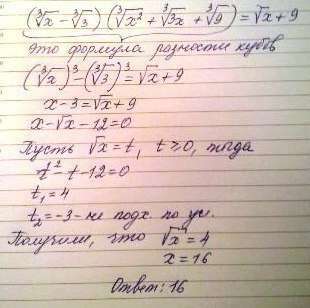 (∛x - ∛3)(∛x² + ∛3x + ∛9) = √x + 9
Это формула разности кубов
(∛x)³ - (∛3)³ = √x + 9
x - 3 = √x + 9
x - √x - 12 = 0
Пусть √x = t, t ≥ 0, тогда
t² - t - 12 = 0
t₁ = 4
t₂ = -3 - не подх. по ус.
Получили, что √x = 4
x = 16
Ответ: 16